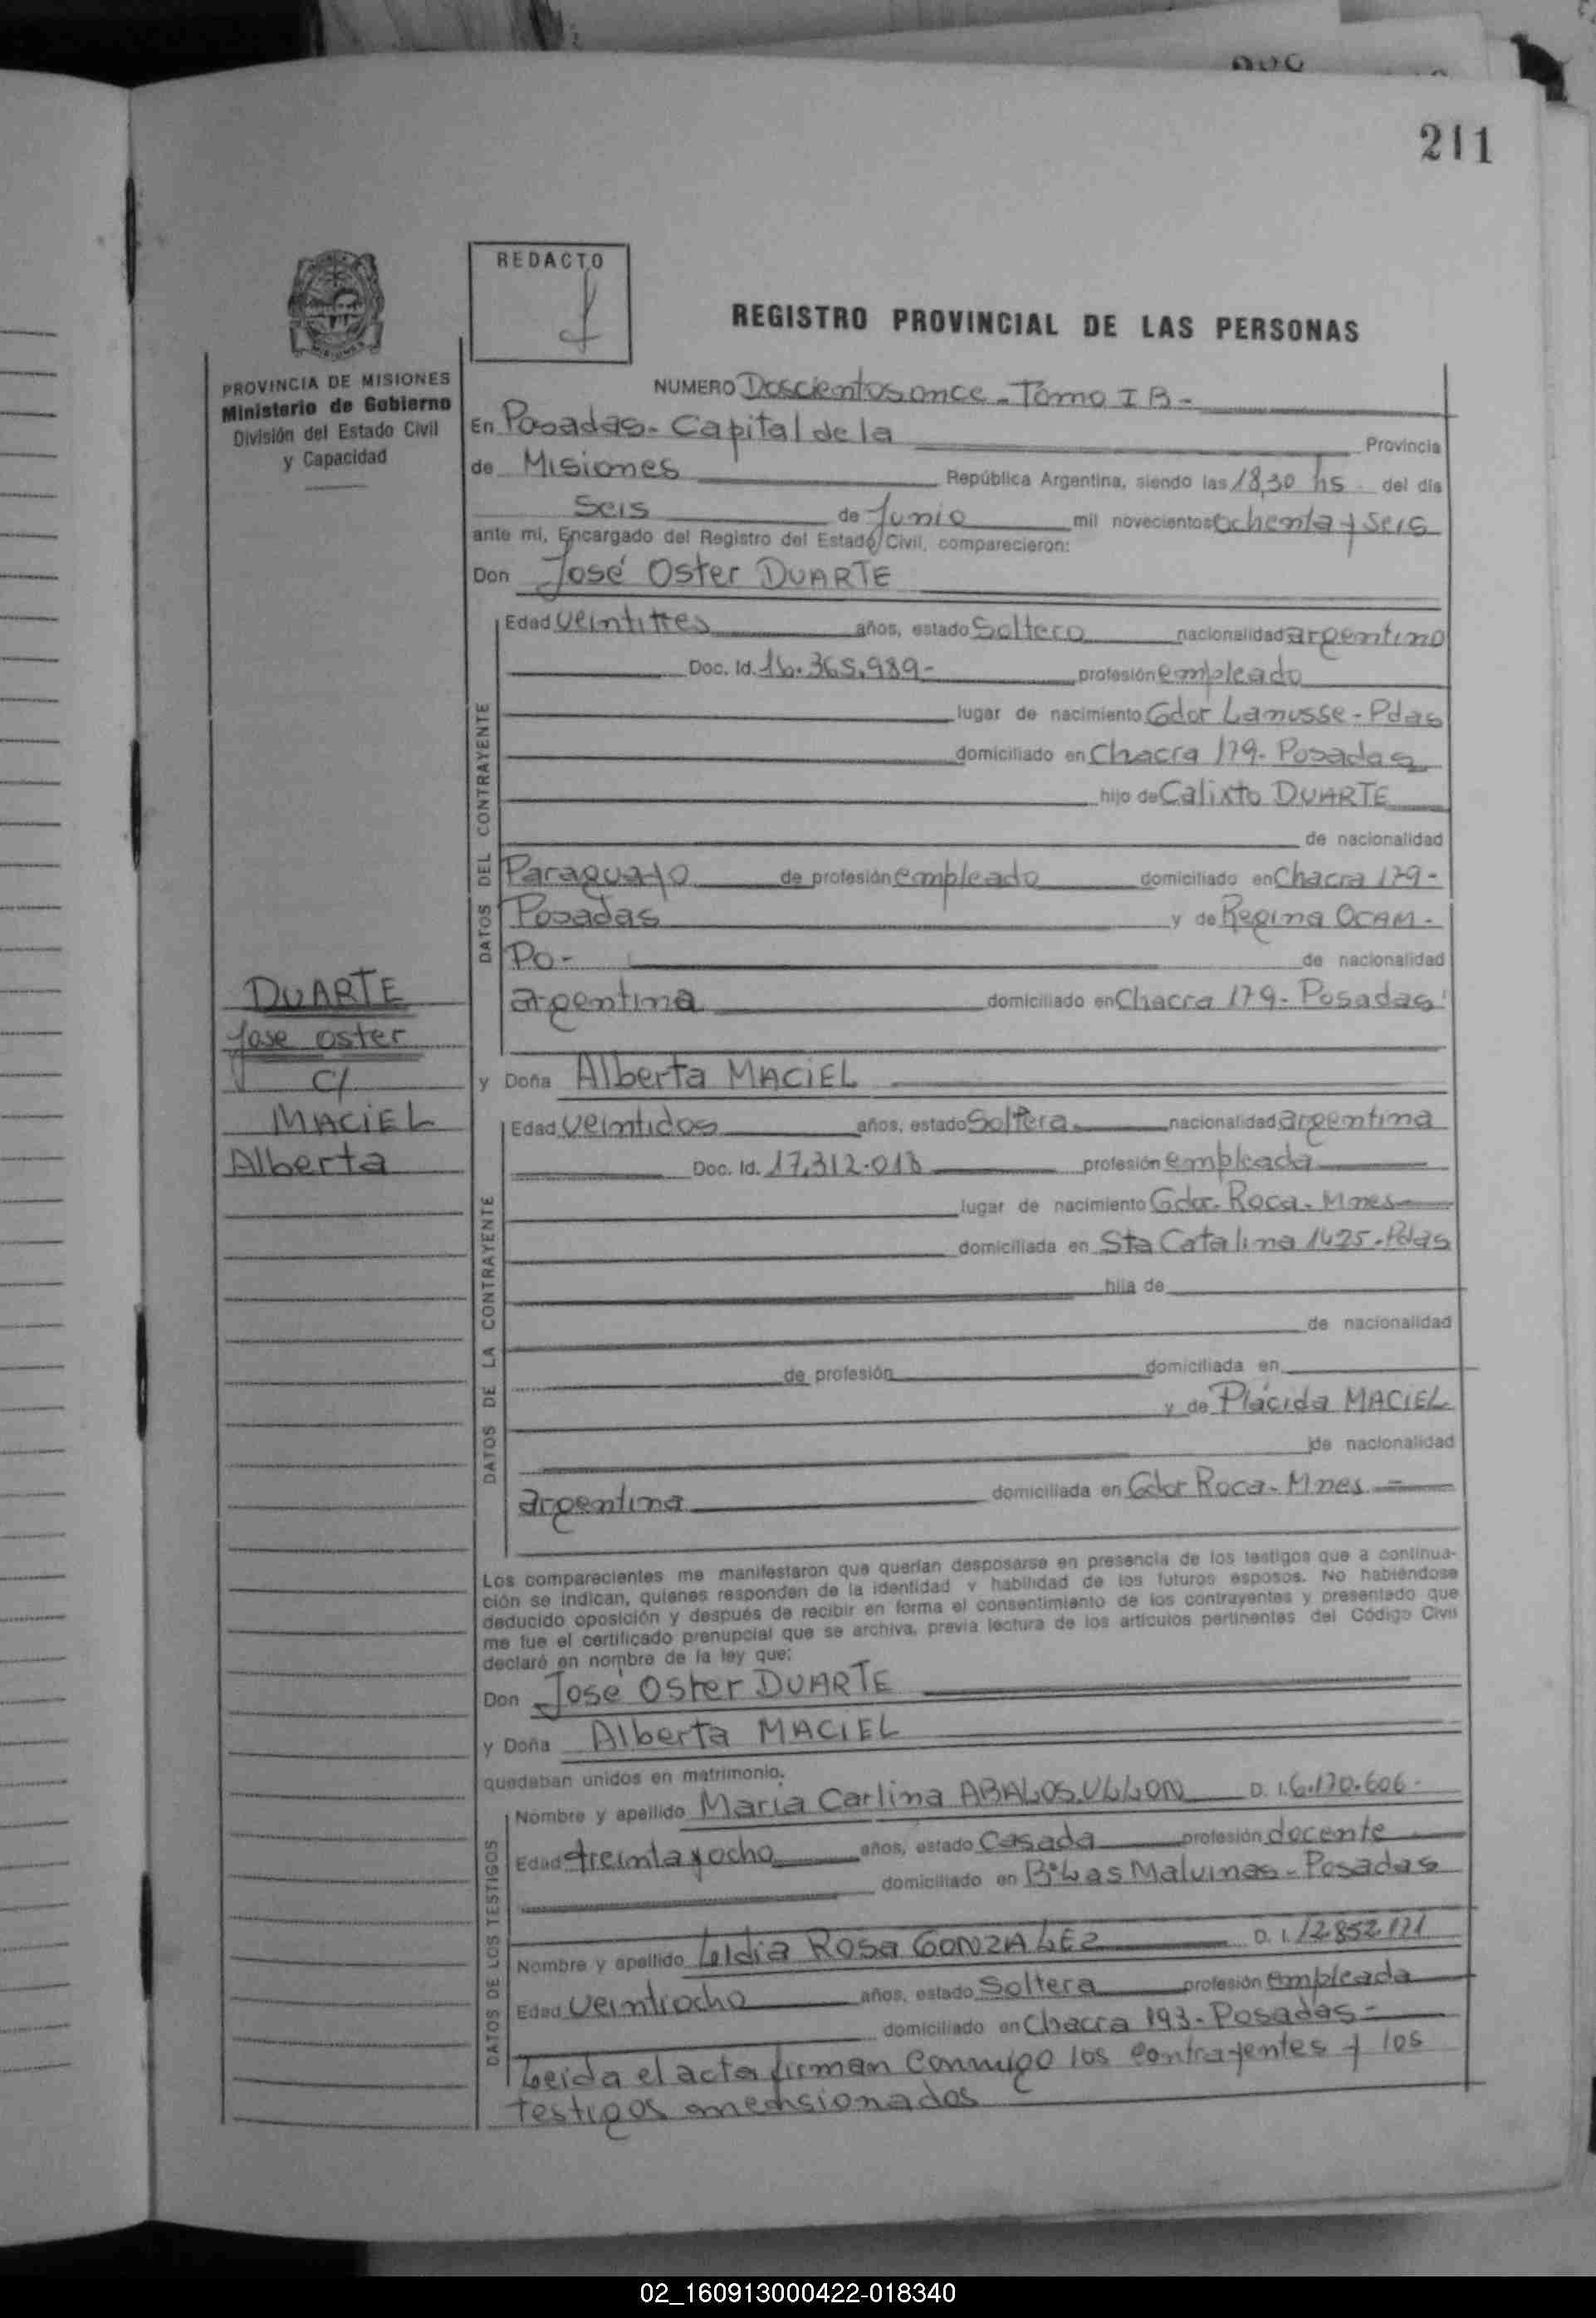 211
REDACTO
REGISTRO PROVINCIAL DE LAS PERSONAS
PROVINCIA DE MISIONES
Ministerio de Gobierno
División del Estado Civil
y Capacidad
NUMERO Doscientos once - Tomo I B -
En Posadas - Capital de la Provincia
de Misiones República Argentina, siendo las 18,30 hs del día
Seis de Junio mil novecientos ochenta y seis
ante mi, Encargado del Registro del Estado Civil, comparecieron:
Don José Oster DUARTE
DATOS DEL CONTRAYENTE
Edad veintitres años, estado Soltero nacionalidad argentino
Doc. Id. 16.365.989- profesión empleado
lugar de nacimiento Gdor Lanusse - Pdas
domiciliado en Chacra 179 - Posadas
hijo de Calixto DUARTE
de nacionalidad
Paraguayo de profesión empleado domiciliado en Chacra 179 -
Posadas y de Regina OCAM-
PO - de nacionalidad
argentina domiciliado en Chacra 179 - Posadas
DUARTE
Jose oster
C/
MACIEL
Alberta
y Doña Alberta MACIEL
DATOS DE LA CONTRAYENTE
Edad veintidos años, estado Soltera nacionalidad argentina
Doc. Id. 17.312.018 profesión empleada
lugar de nacimiento Gdor. Roca - Mnes
domiciliada en Sta Catalina 1425 - Pdas
hija de
de nacionalidad
de profesión domiciliada en
y de Plácida MACIEL
de nacionalidad
argentina domiciliada en Gdor Roca - Mnes -
Los comparecientes me manifestaron que querían desposarse en presencia de los testigos que a continua-
ción se indican, quienes responden de la identidad y habilidad de los futuros esposos. No habiéndose
deducido oposición y después de recibir en forma el consentimiento de los contrayentes y presentado que
me fue el certificado prenupcial que se archiva, previa lectura de los artículos pertinentes del Código Civil
declaré en nombre de la ley que:
Don José Oster DUARTE
y Doña Alberta MACIEL
quedaban unidos en matrimonio.
DATOS DE LOS TESTIGOS
Nombre y apellido Maria Carlina ABALOS ULLON D. I. 6.170.606 -
Edad treinta y ocho años, estado Casada profesión docente
domiciliado en Bº Las Malvinas - Posadas
Nombre y apellido Leldia Rosa GONZALEZ D. I. 12.852.171
Edad veintiocho años, estado Soltera profesión empleada
domiciliado en Chacra 193 - Posadas -
Leida el acta firman conmigo los contrayentes y los
testigos mensionados
02_160913000422-018340